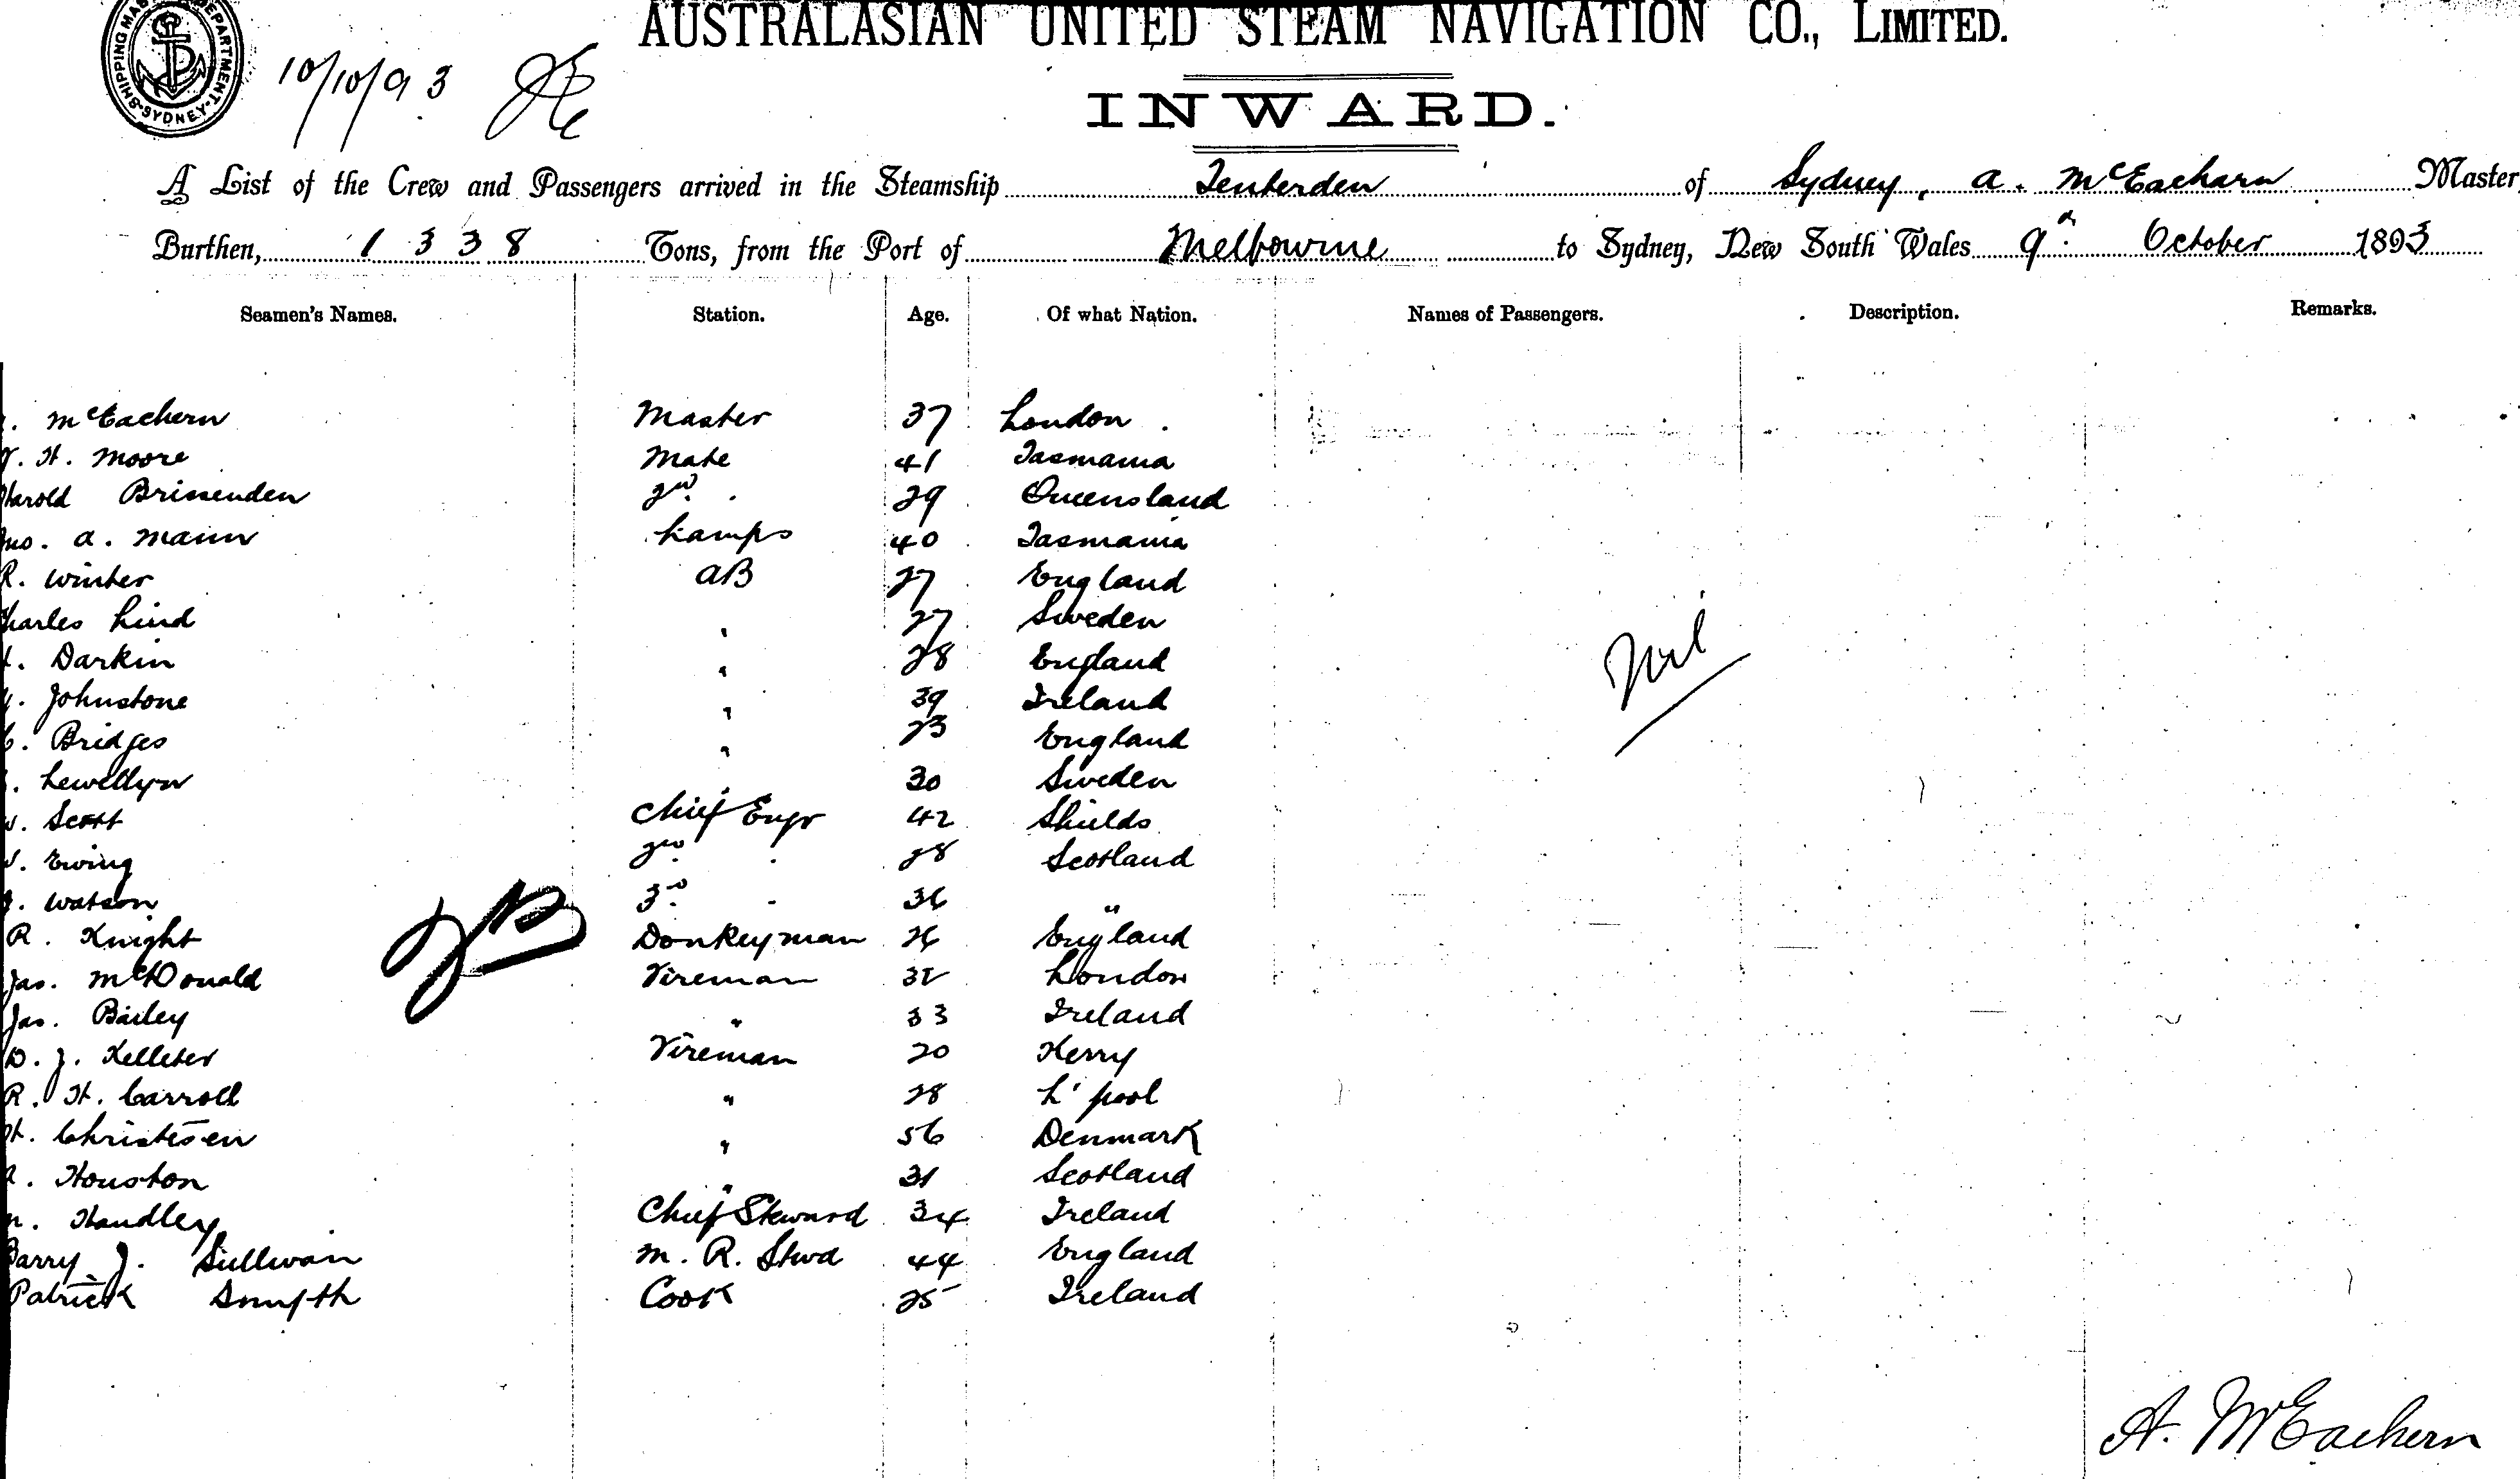 SHIPPING MA DEPARTMENT SYDNEY
10/10/93
AUSTRALASIAN UNITED STEAM NAVIGATION CO., LIMITED.
INWARD.
A List of the Crew and Passengers arrived in the Steamship Tenterden of Sydney, A. McEachern Master,
Burthen, 1338 Tons, from the Port of Melbourne to Sydney, New South Wales 9th October 1893
Seamen's Names. Station. Age. Of what Nation. Names of Passengers. Description. Remarks.
. McEachern Master 37 London
. H. Moore Mate 41 Tasmania
Harold Brissenden 2nd " 29 Queensland
Jno. A. Mann Lamps 40 Tasmania
R. Winter AB 27 England
Charles Lind " 27 Sweden
. Darkin " 28 England
. Johnstone " 39 Ireland
. Bridges " 23 England
. Lewellyn " 30 Sweden
. Scott Chief Engr 42 Shields
. Ewing 2nd " 28 Scotland
. Watson 3rd " 36 "
R. Knight Donkeyman 26 England
Jas. McDonald Fireman 32 London
Jas. Bailey " 33 Ireland
D. J. Kelleher Fireman 20 Kerry
R. H. Carroll " 28 L'pool
H. Christesen " 56 Denmark
. Houston " 31 Scotland
. Handley Chief Steward 34 Ireland
Barry J. Sullivan M. R. Stwd 44 England
Patrick Smyth Cook 25 Ireland
Nil
A. McEachern